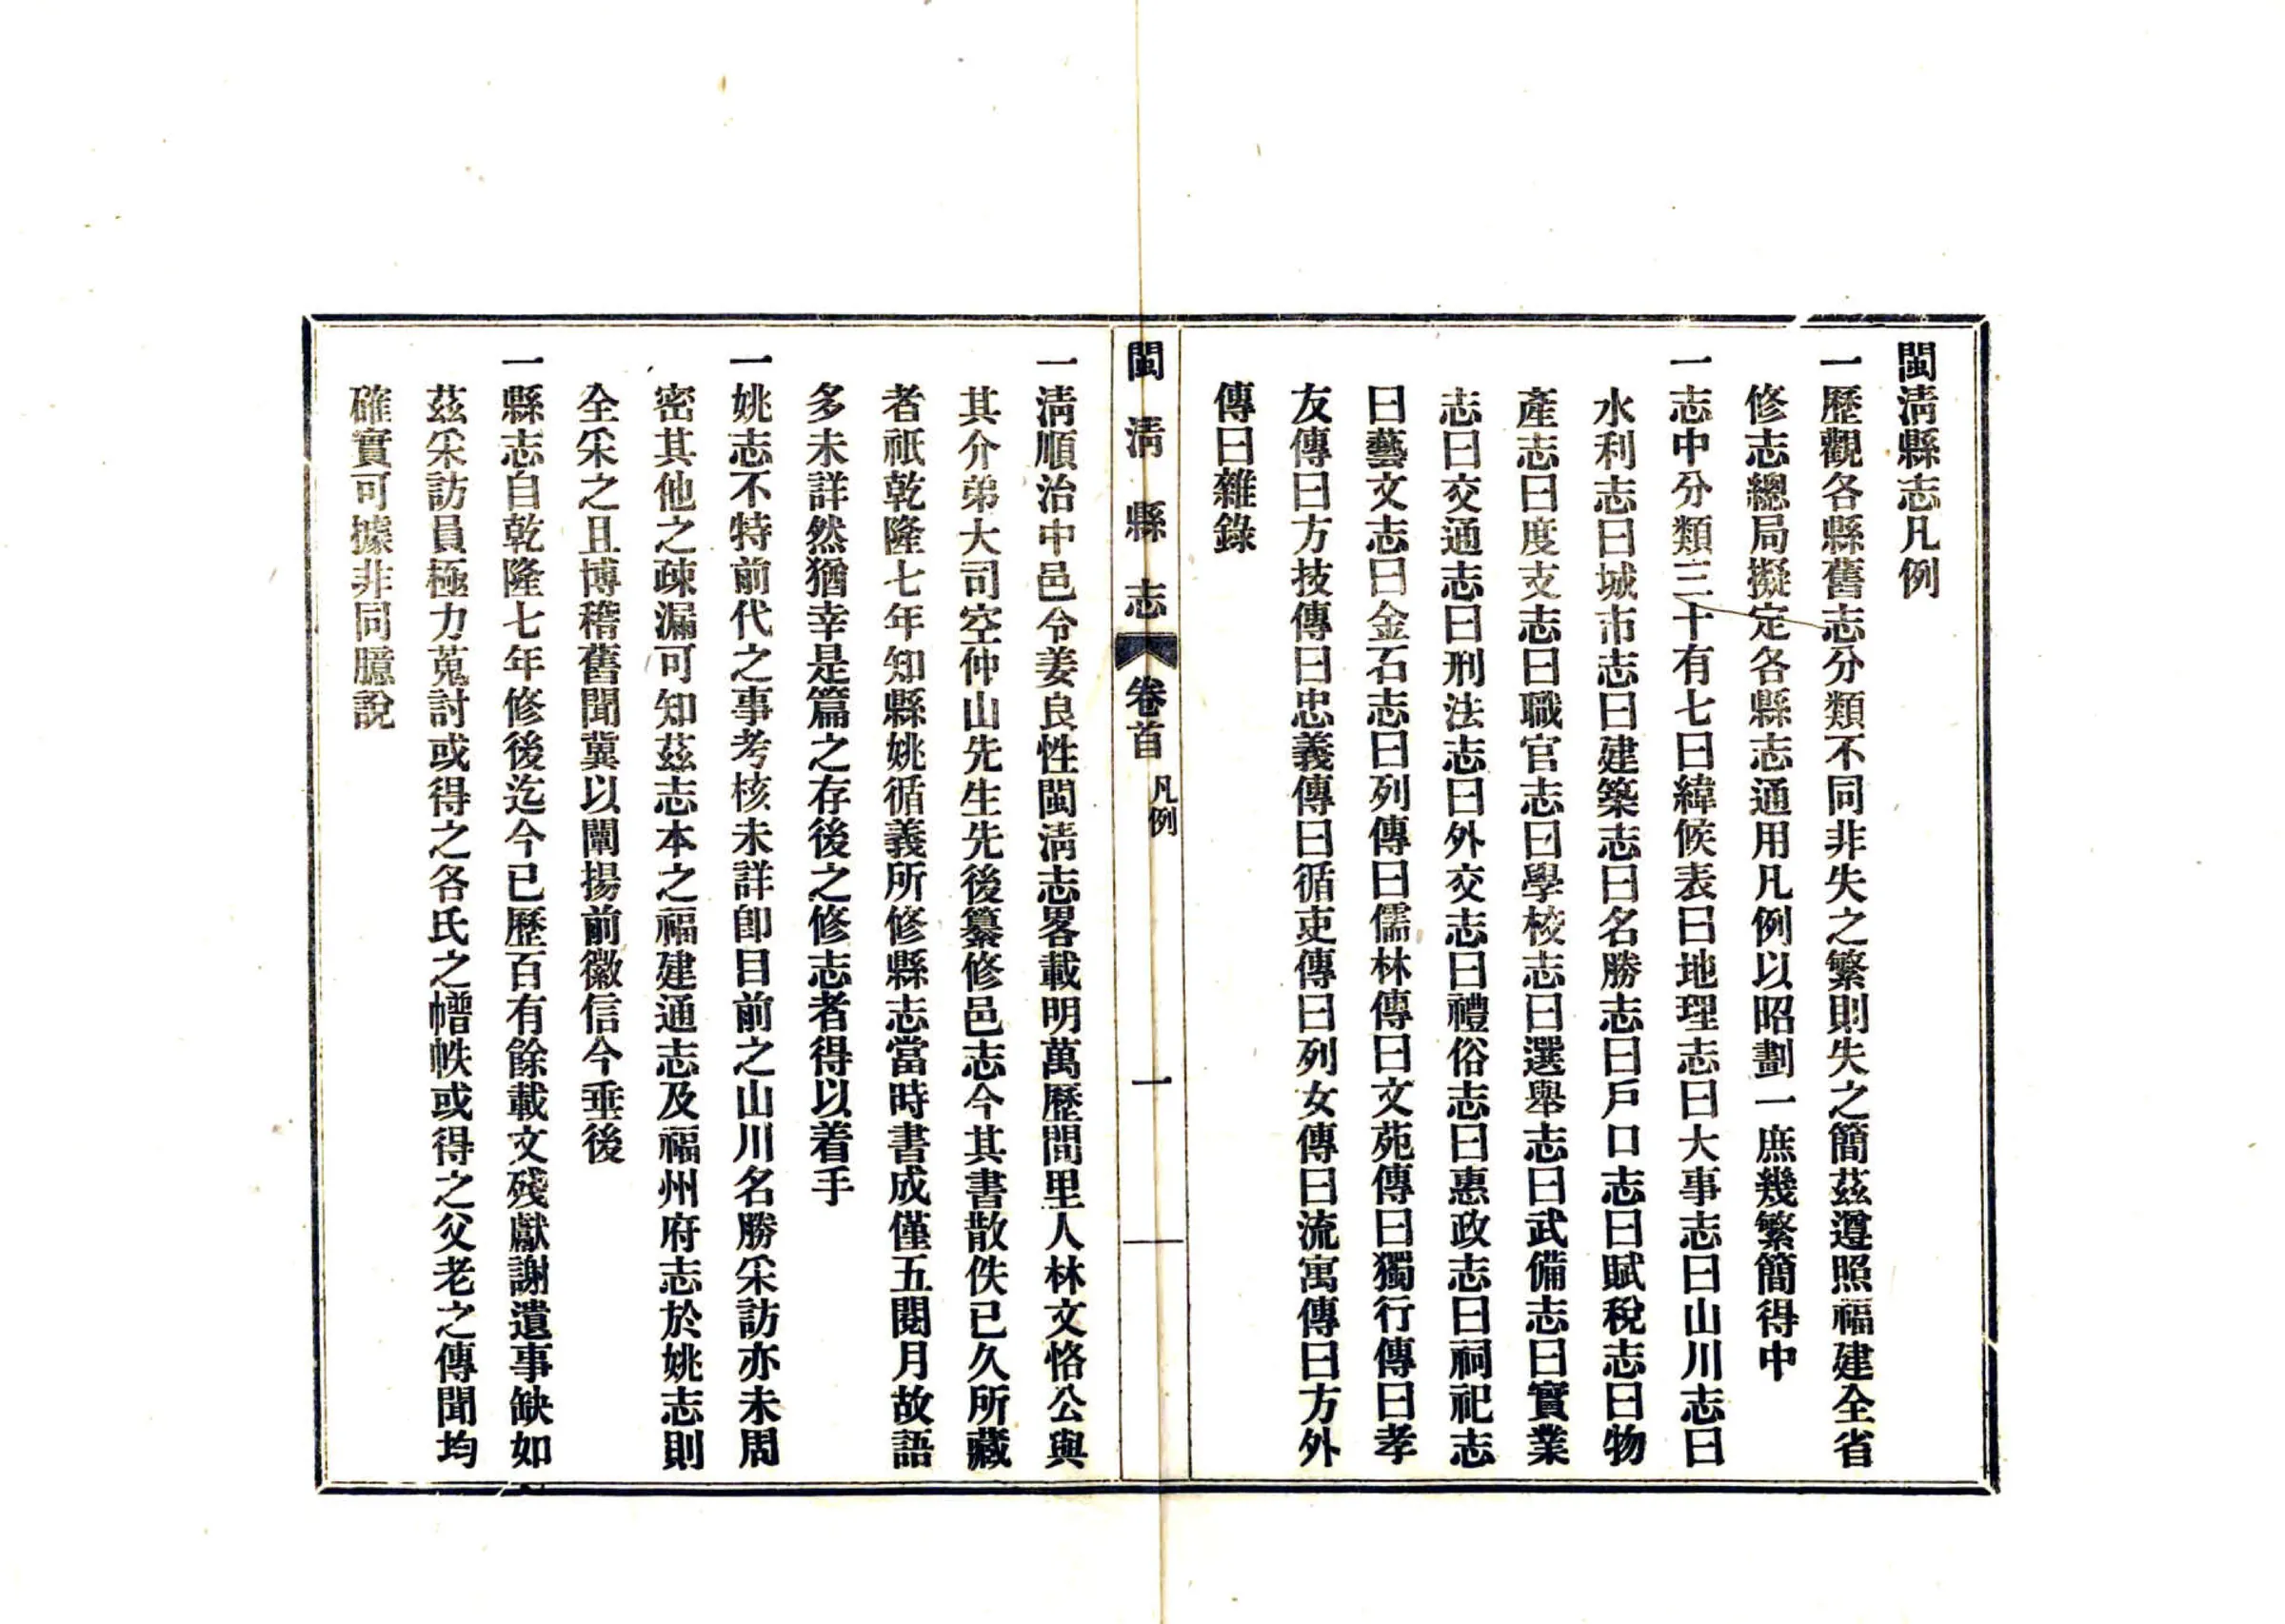 閩淸縣志凡例
一歷觀各縣舊志分類不同非失之繁則失之簡茲遵照福建全省
修志總局擬定各縣志通用凡例以昭劃一庶幾繁簡得中
一志中分類三十有七曰緯候表曰地理志曰大事志曰山川志曰
水利志曰城市志曰建築志曰名勝志曰戶口志曰賦稅志曰物
產志曰度支志曰職官志曰學校志曰選舉志曰武備志曰實業
志曰交通志曰刑法志曰外交志曰禮俗志曰惠政志曰祠祀志
曰藝文志曰金石志曰列傳曰儒林傳曰文苑傳曰獨行傳曰孝
友傳曰方技傳曰忠義傳曰循吏傳曰列女傳曰流寓傳曰方外
傳曰雜錄
閩淸縣志
卷首
凡例
一
一淸順治中邑令姜良性閩淸志畧載明萬歷間里人林文恪公與
其介弟大司空仲山先生先後纂修邑志今其書散佚已久所藏
者祇乾隆七年知縣姚循義所修縣志當時書成僅五閱月故語
多未詳然猶幸是篇之存後之修志者得以着手
一姚志不特前代之事考核未詳卽目前之山川名勝采訪亦未周
密其他之疎漏可知茲志本之福建通志及福州府志於姚志則
全采之且博稽舊聞冀以闡揚前徽信今垂後
一縣志自乾隆七年修後迄今已歷百有餘載文殘獻謝遺事缺如
茲采訪員極力蒐討或得之各氏之㡡帙或得之父老之傳聞均
確實可據非同臆說